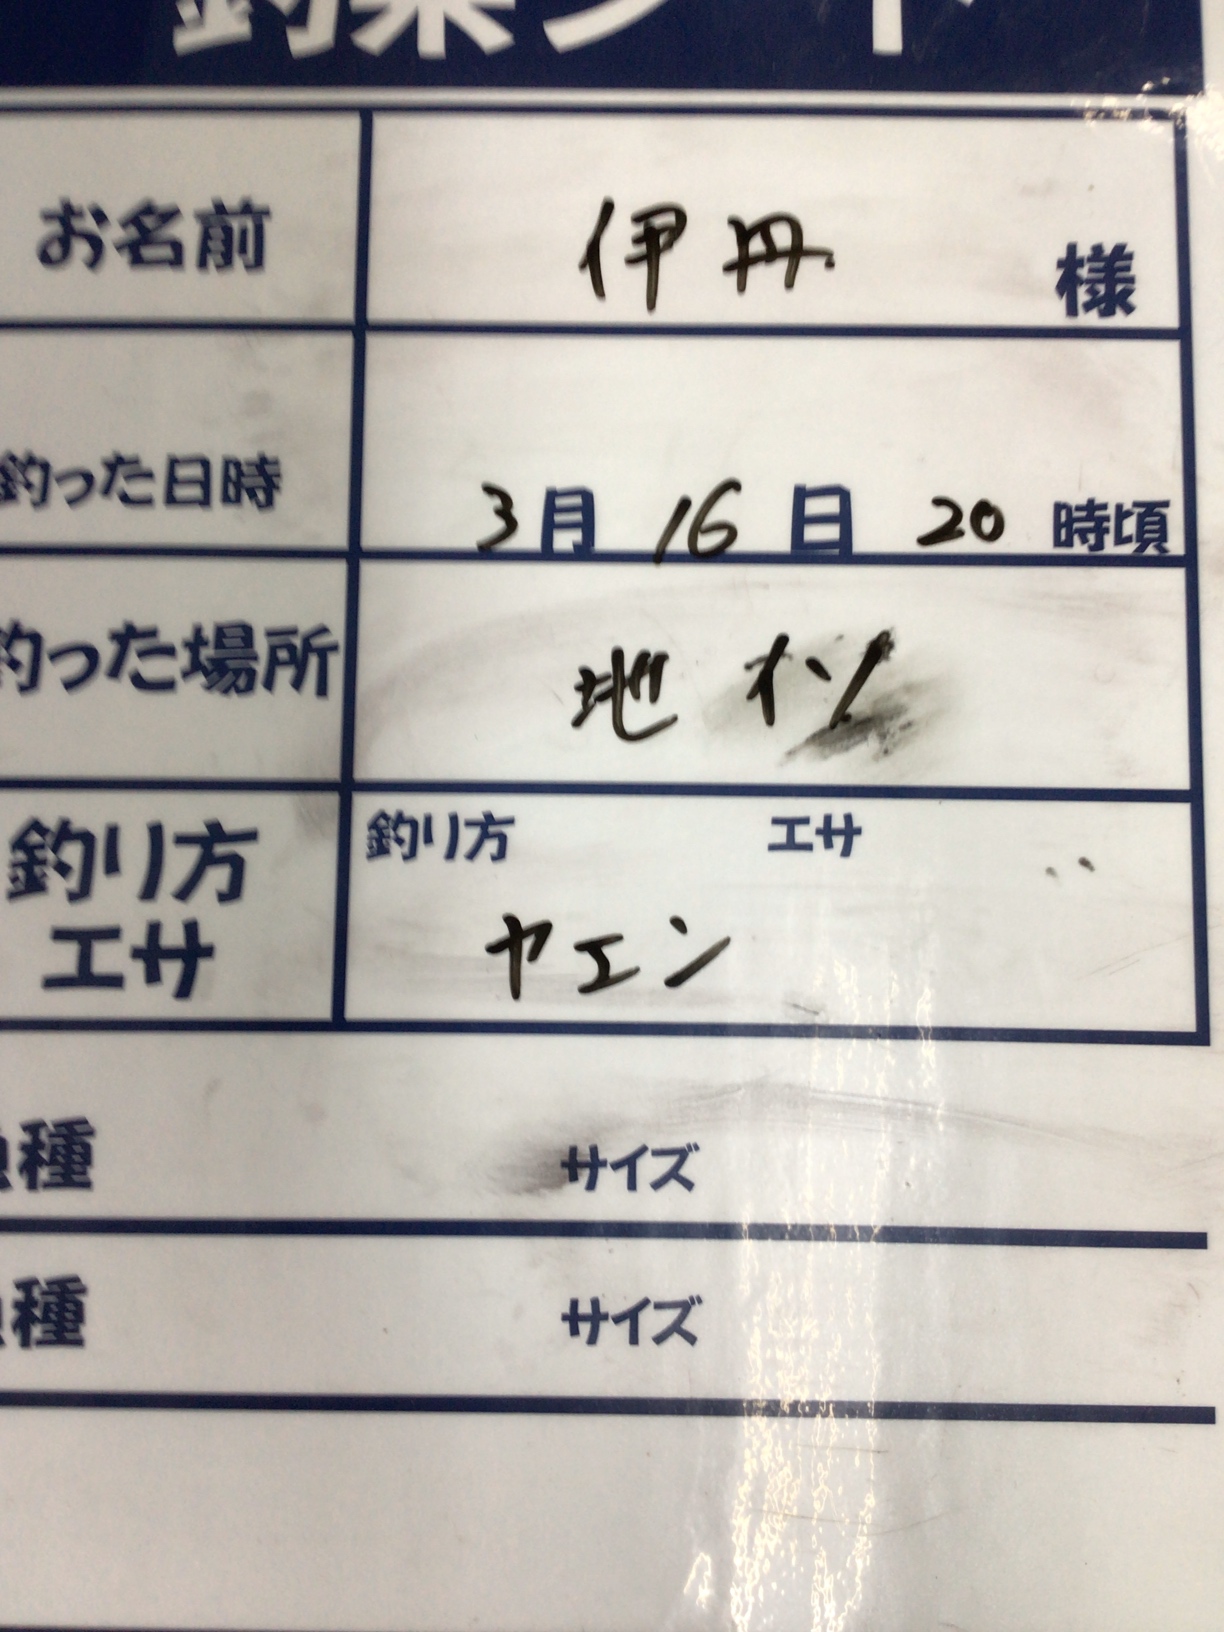 お名前 伊丹 様
釣った日時 3月 16日 20時頃
釣った場所 地イソ
釣り方 エサ
釣り方 エサ
ヤエン
魚種 サイズ
魚種 サイズ